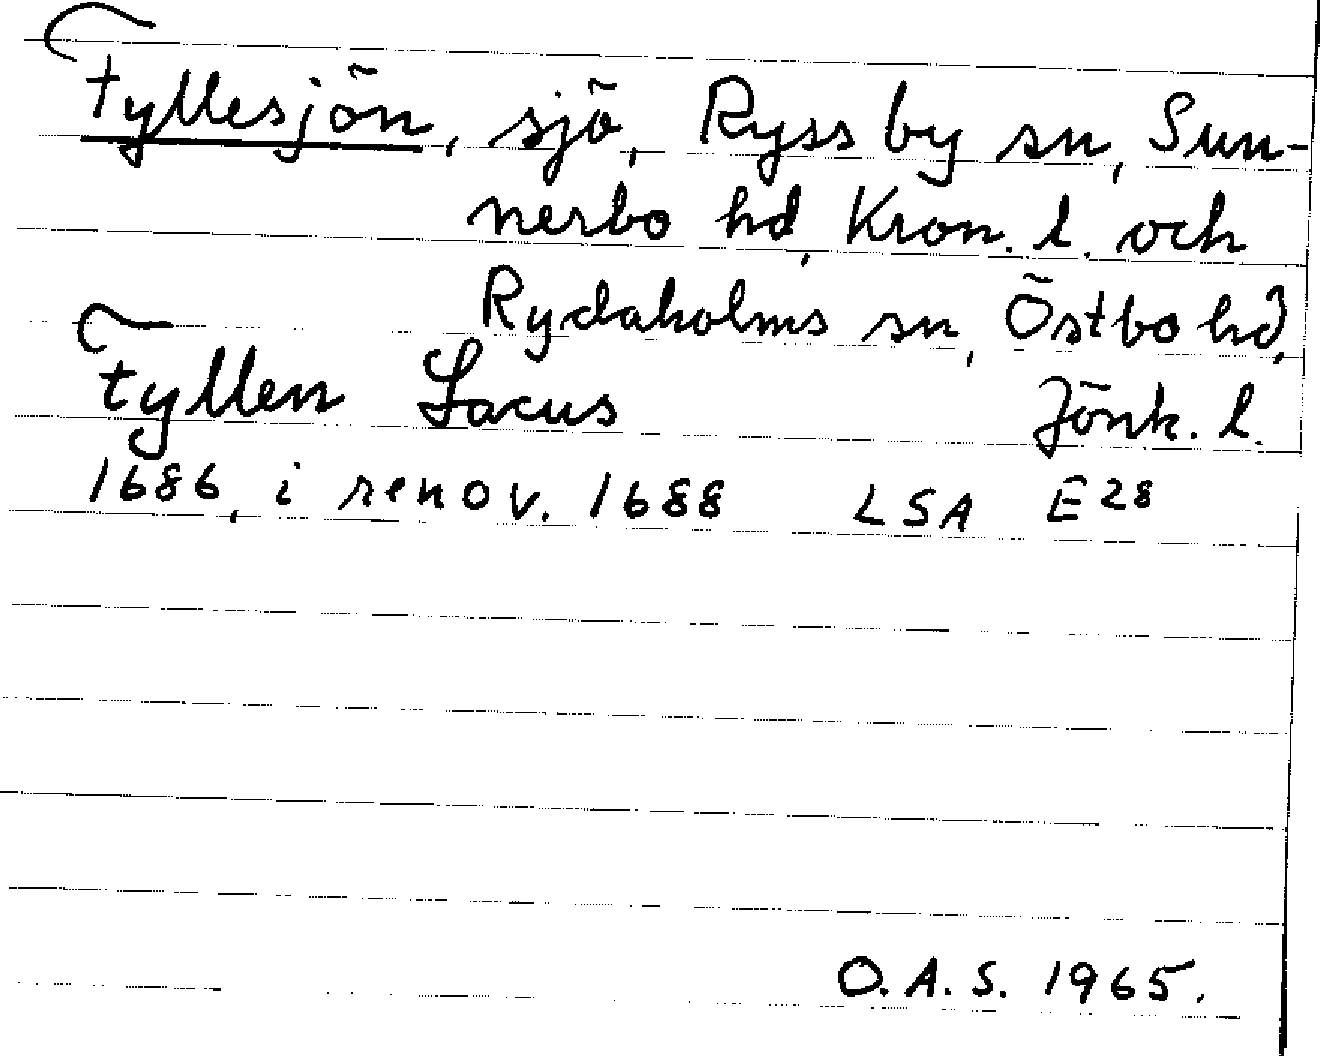 Fyllesjön, sjö, Ryssby sn, Sun-
nerbo hd, Kron. l. och
Rydaholms sn, Östbo hd,
Jönk. l.
Fyllen Lacus
1686, i renov. 1688 LSA E28
O.A.S. 1965.